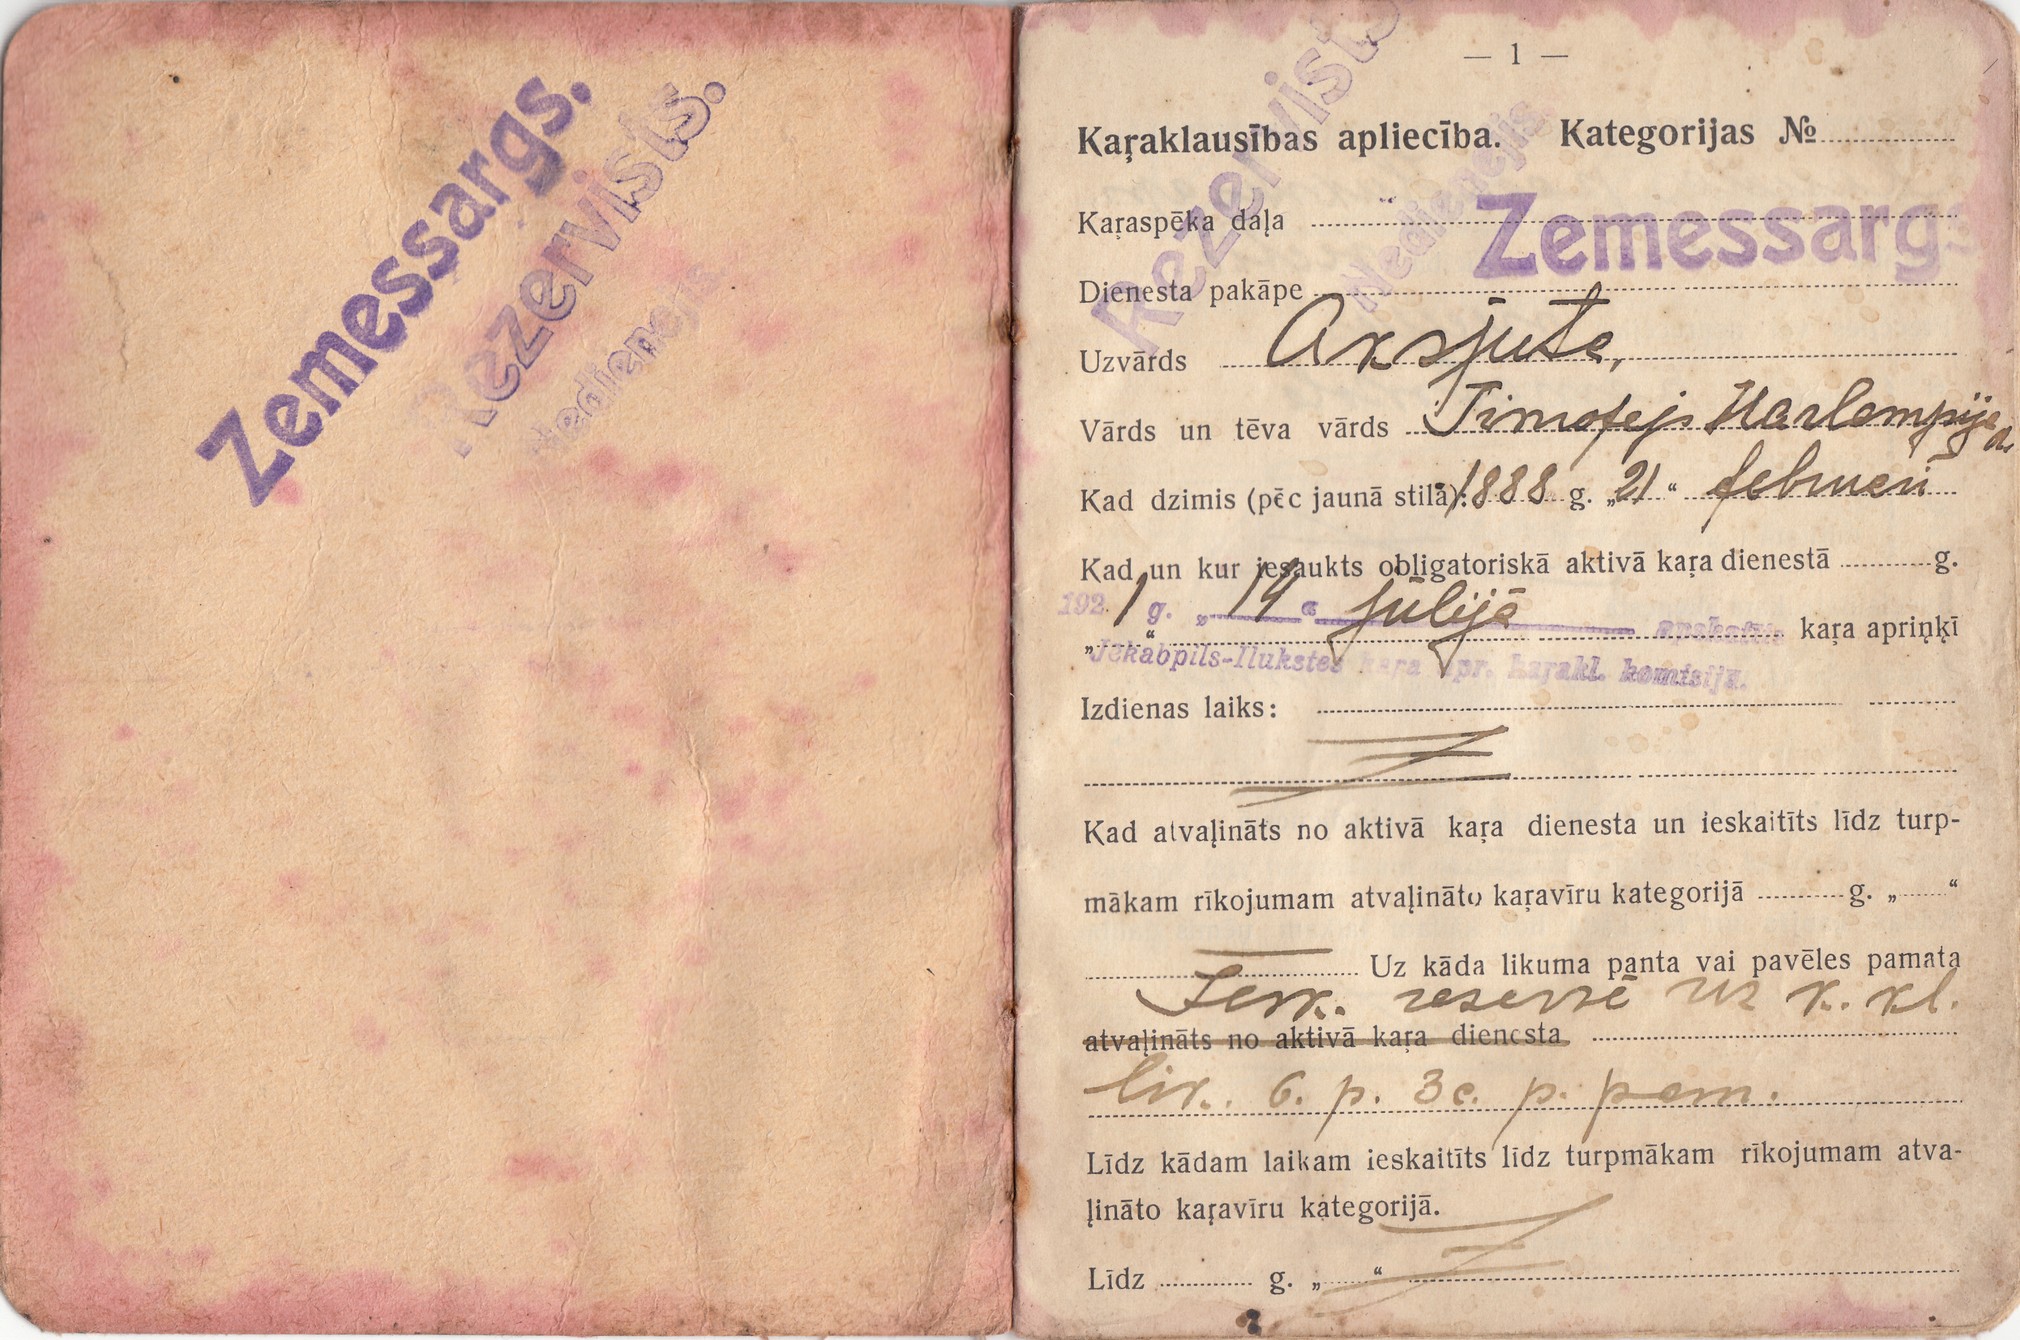 Zemessargs.
Rezervists.
Nedienejis.
— 1 —
Rezervists
Nedienejis.
Kaŗaklausības apliecība. Kategorijas №
Kaŗaspēka daļa „
Zemessargs
Dienesta pakāpe
Uzvārds Aksjuta,
Vārds un tēva vārds Timofejs Harlampija d.
Kad dzimis (pēc jaunā stila): 1888 g. „21“ februarī
Kad un kur iesaukts obligatoriskā aktivā kaŗa dienestā g.
1921 g. „14“ jūlijā apskatīts
„ “ kaŗa apriņķī
Jēkabpils-Ilukstes kaŗa apr. kaŗakl. komisijā.
Izdienas laiks:
Kad atvaļināts no aktivā kaŗa dienesta un ieskaitīts līdz turp-
mākam rīkojumam atvaļināto kaŗavīru kategorijā g. „ “
Uz kāda likuma panta vai pavēles pamata
Iesk. reservē uz k. kl.
atvaļināts no aktivā kaŗa dienesta
lik. 6. p. 3c. p. pam.
Līdz kādam laikam ieskaitīts līdz turpmākam rīkojumam atva-
ļināto kaŗavīru kategorijā.
Līdz g. „ “